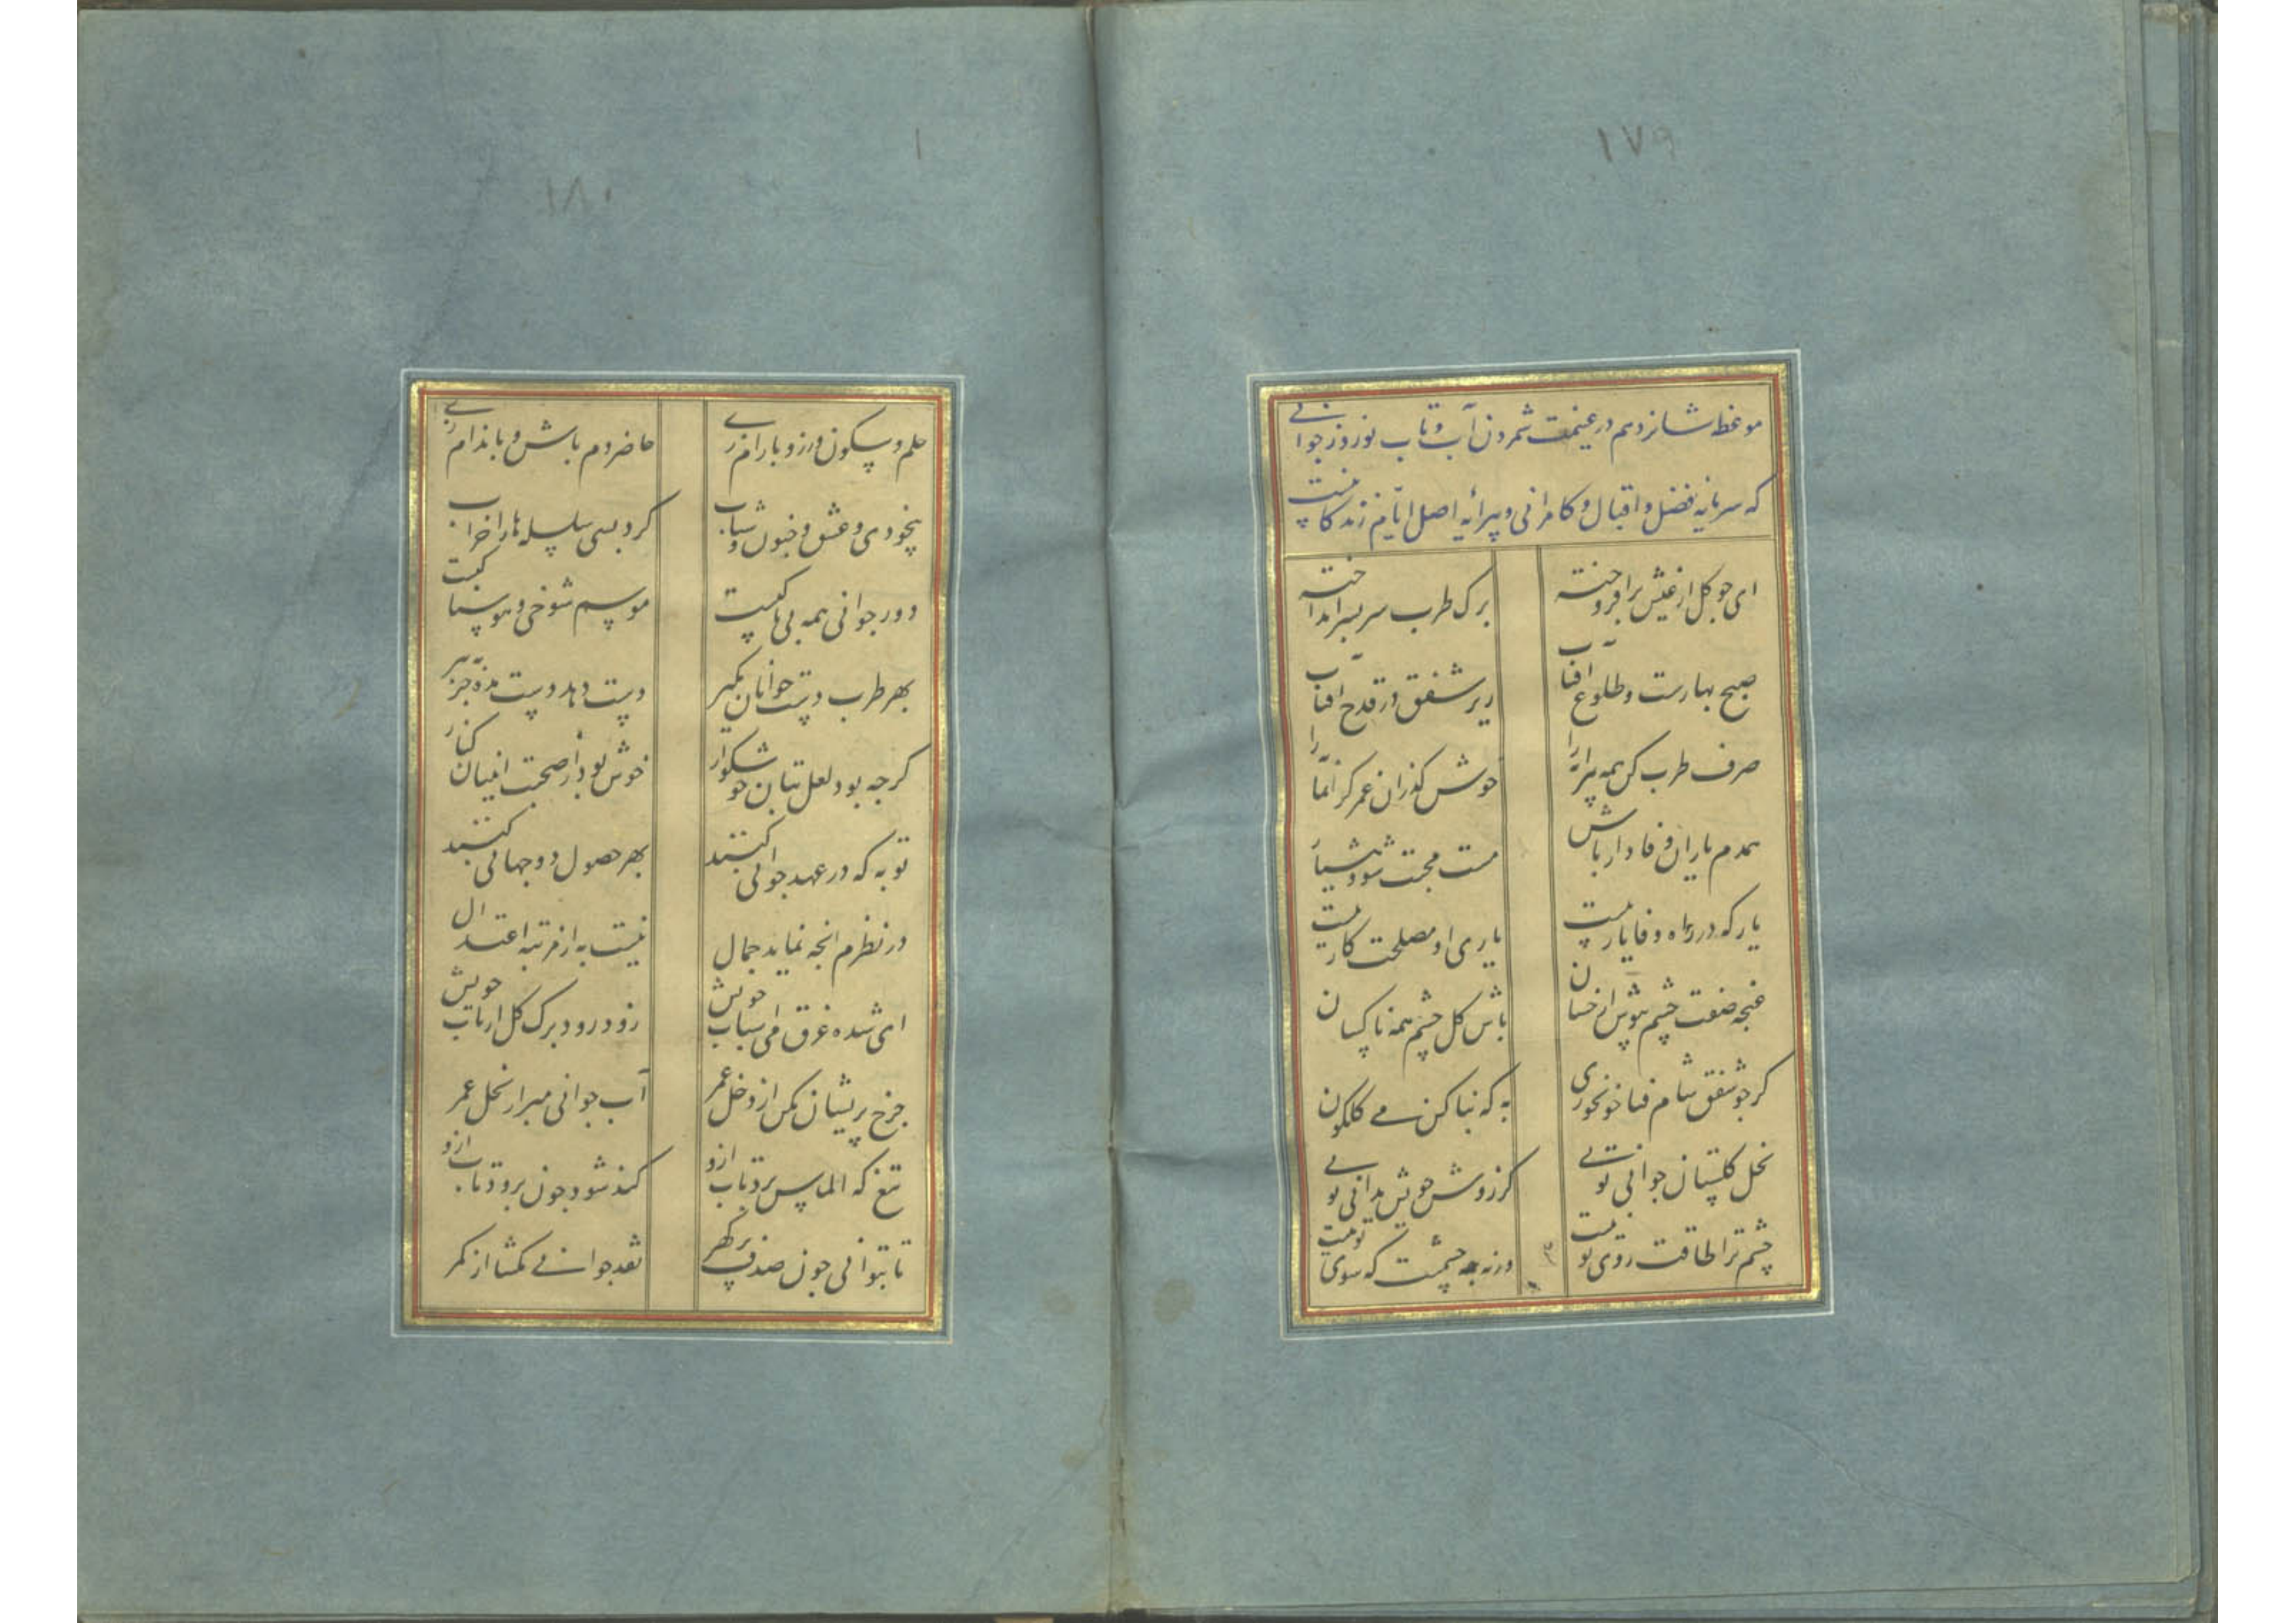 ۱۷۹
موعظه شانزدهم در غنیمت شمردن آب و تاب نوروز جوانی
که سرمایه فضل و اقبال و کامرانی و پیرایه اصل ایام زندگانیست
ای جو کل از عیش برافروخته برک طرب سربسر انداخته
صبح بهارست و طلوع آفتاب ریز شفق در قدح آفتاب
صرف طرب کن همه پیرایه را خوش گذران عمر گرانمایه را
همدم یاران وفادار باش مست محبت شو و هشیار باش
یار که در راه وفا یار نیست یاری او مصلحت کار نیست
غنچه صفت چشم بپوش از خسان باش کل چشم همه ناکسان
کر جو شفق شام فنا خون خوری به که بنا کن می کلکون
نخل کلستان جوانی تویی کر روش خویش بدانی تویی
چشم ترا طاقت روی تو نیست ورنه چه چشمست که سوی تو نیست
۱۸۰
حلم و سکون ورز و بارام زی حاضر دم باش و باندام زی
بیخودی و عشق و جنون و شباب کرد بسی سلسله ها را خراب
دور جوانی همه بی باکیست موسم شوخی و هوسناکیست
بهر طرب دست جوانان بگیر دست دهد دست مده جز به پیر
کرچه بود لعل بتان خوشکوار خوش بود از صحبت ایشان کنار
توبه که در عهد جوانی کنند بهر حصول دو جهانی کنند
در نظرم انچه نماید جمال نیست به از مرتبه اعتدال
ای شده غرق می اسباب خویش زود رود برک کل از تاب خویش
چرخ پریشان مکن از دخل عمر آب جوانی مبر از نخل عمر
تیغ که الماس برد تاب ازو کند شود چون برود تاب ازو
تا بتوانی چون صدف پر گهر نقد جوانی مکشا از کمر